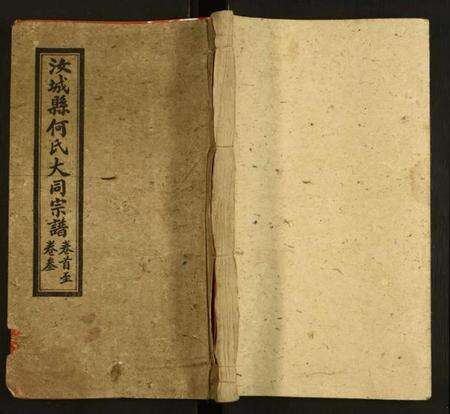 汝城縣何氏大同宗譜
卷首至
卷叁